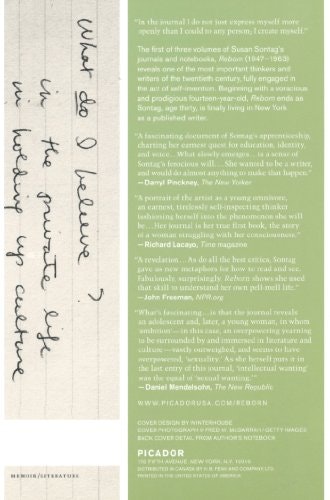 What do I believe?
in the private life
in holding up culture
MEMOIR/LITERATURE
"In the journal I do not just express myself more
openly than I could to any person; I create myself."
The first of three volumes of Susan Sontag's
journals and notebooks, Reborn (1947–1963)
reveals one of the most important thinkers and
writers of the twentieth century, fully engaged in
the act of self-invention. Beginning with a voracious
and prodigious fourteen-year-old, Reborn ends as
Sontag, age thirty, is finally living in New York
as a published writer.
"A fascinating document of Sontag's apprenticeship,
charting her earnest quest for education, identity,
and voice... What slowly emerges... is a sense of
Sontag's ferocious will.... She wanted to be a writer, and
would do almost anything to make that happen."
—Darryl Pinckney, The New Yorker
"A portrait of the artist as a young omnivore,
an earnest, tirelessly self-inspecting thinker
fashioning herself into the phenomenon she will
be... Her journal is her true first book, the story
of a woman struggling with her consciousness."
—Richard Lacayo, Time magazine
"A revelation... As do all the best critics, Sontag
gave us new metaphors for how to read and see.
Fabulously, surprisingly, Reborn shows she used
that skill to understand her own pell-mell life."
—John Freeman, NPR.org
"What's fascinating... is that the journal reveals
an adolescent and, later, a young woman, in whom
'ambition'—in this case, an overpowering yearning
to be surrounded by and immersed in literature and
culture—vastly outweighed, and seems to have
overpowered, 'sexuality.' As she herself puts it in
the last entry of this journal, 'intellectual wanting'
was the equal of 'sexual wanting.'"
—Daniel Mendelsohn, The New Republic
WWW.PICADORUSA.COM/REBORN
COVER DESIGN BY WINTERHOUSE
COVER PHOTOGRAPH © FRED W. MCDARRAH / GETTY IMAGES
BACK COVER DETAIL FROM AUTHOR'S NOTEBOOK
PICADOR
175 FIFTH AVENUE, NEW YORK, N.Y. 10010
DISTRIBUTED IN CANADA BY H.B. FENN AND COMPANY LTD.
PRINTED IN THE UNITED STATES OF AMERICA